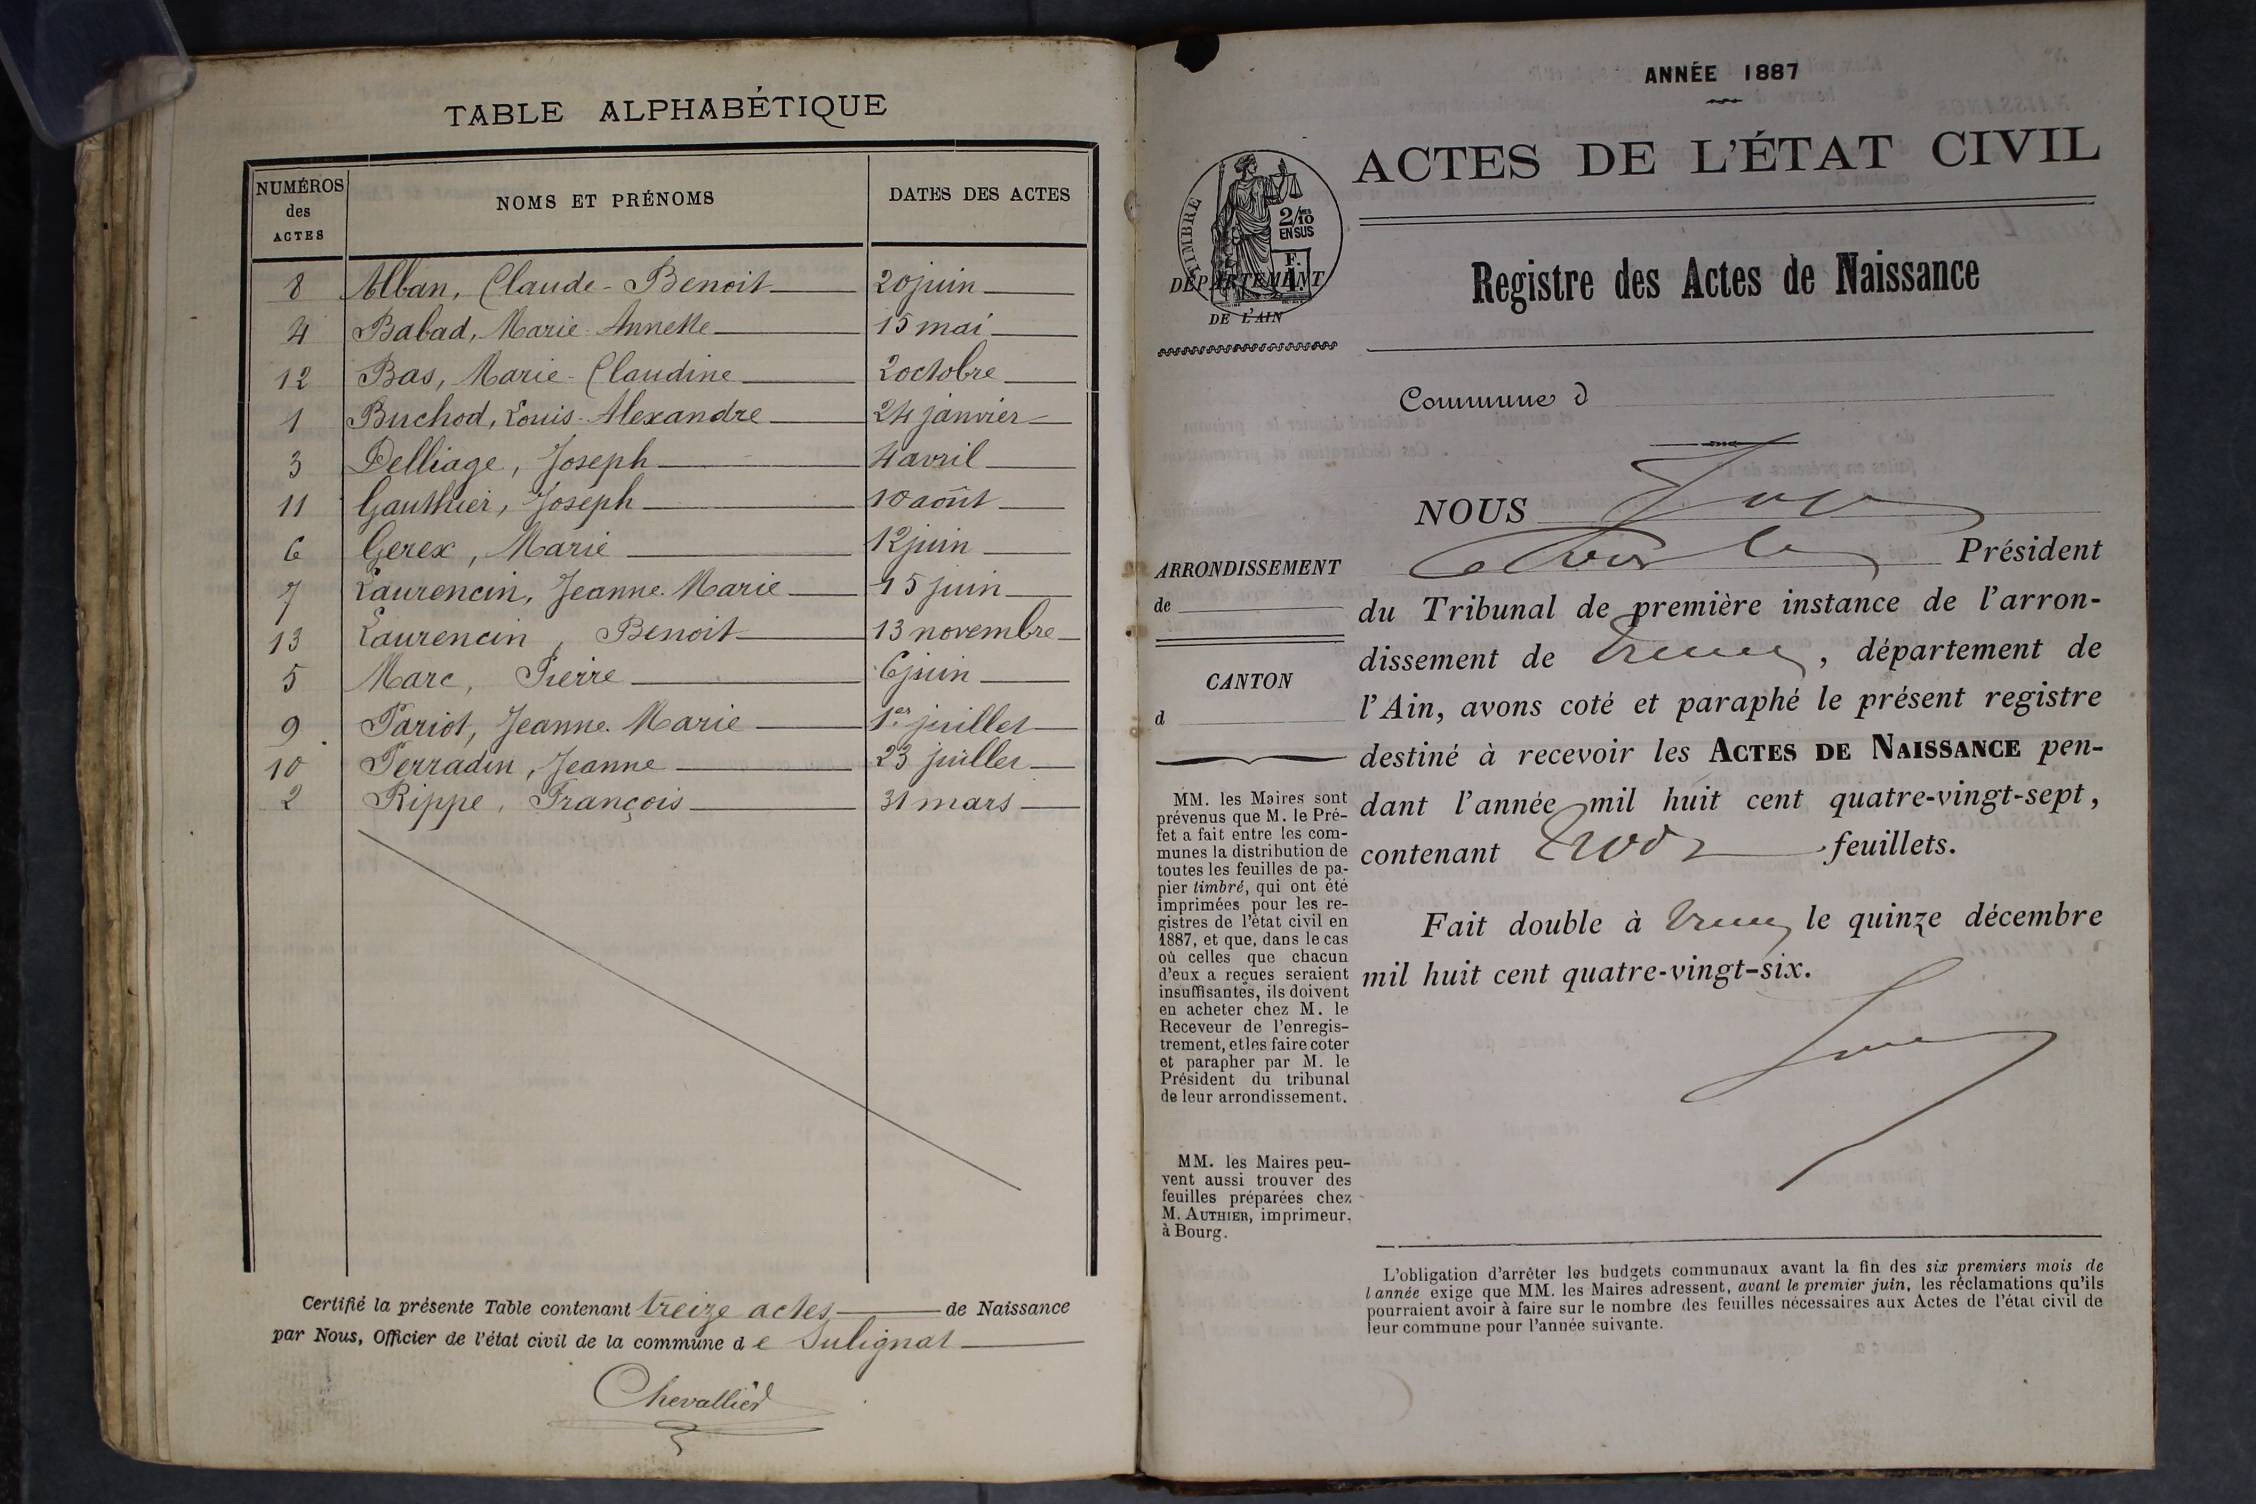 TABLE ALPHABÉTIQUE
NUMÉROS des ACTES
NOMS ET PRÉNOMS
DATES DES ACTES
8 Alban, Claude-Benoit 20 juin
4 Babad, Marie-Annette 15 mai
12 Bas, Marie-Claudine 2 octobre
1 Buchod, Louis-Alexandre 24 janvier
3 Delliage, Joseph 4 avril
11 Gauthier, Joseph 10 août
6 Gerex, Marie 12 juin
7 Laurencin, Jeanne-Marie 15 juin
13 Laurencin, Benoit 13 novembre
5 Marc, Pierre 6 juin
9 Pariot, Jeanne-Marie 1er juillet
10 Perradin, Jeanne 23 juillet
2 Rippe, François 31 mars
Certifié la présente Table contenant treize actes de Naissance
par Nous, Officier de l'état civil de la commune de Sulignat
Chevallier
ANNÉE 1887
ACTES DE L'ÉTAT CIVIL
TIMBRE
2/10 EN SUS
F. 1
DÉPARTEMENT
DE L'AIN
Registre des Actes de Naissance
Commune d
NOUS
Président
ARRONDISSEMENT
de
CANTON
d
du Tribunal de première instance de l'arron-
dissement de Trévoux, département de
l'Ain, avons coté et paraphé le présent registre
destiné à recevoir les ACTES DE NAISSANCE pen-
dant l'année mil huit cent quatre-vingt-sept,
contenant feuillets.
Fait double à Trévoux le quinze décembre
mil huit cent quatre-vingt-six.
MM. les Maires sont
prévenus que M. le Pré-
fet a fait entre les com-
munes la distribution de
toutes les feuilles de pa-
pier timbré, qui ont été
imprimées pour les re-
gistres de l'état civil en
1887, et que, dans le cas
où celles que chacun
d'eux a reçues seraient
insuffisantes, ils doivent
en acheter chez M. le
Receveur de l'enregis-
trement, et les faire coter
et parapher par M. le
Président du tribunal
de leur arrondissement.
MM. les Maires peu-
vent aussi trouver des
feuilles préparées chez
M. AUTHIER, imprimeur,
à Bourg.
L'obligation d'arrêter les budgets communaux avant la fin des six premiers mois de
l'année exige que MM. les Maires adressent, avant le premier juin, les réclamations qu'ils
pourraient avoir à faire sur le nombre des feuilles nécessaires aux Actes de l'état civil de
leur commune pour l'année suivante.